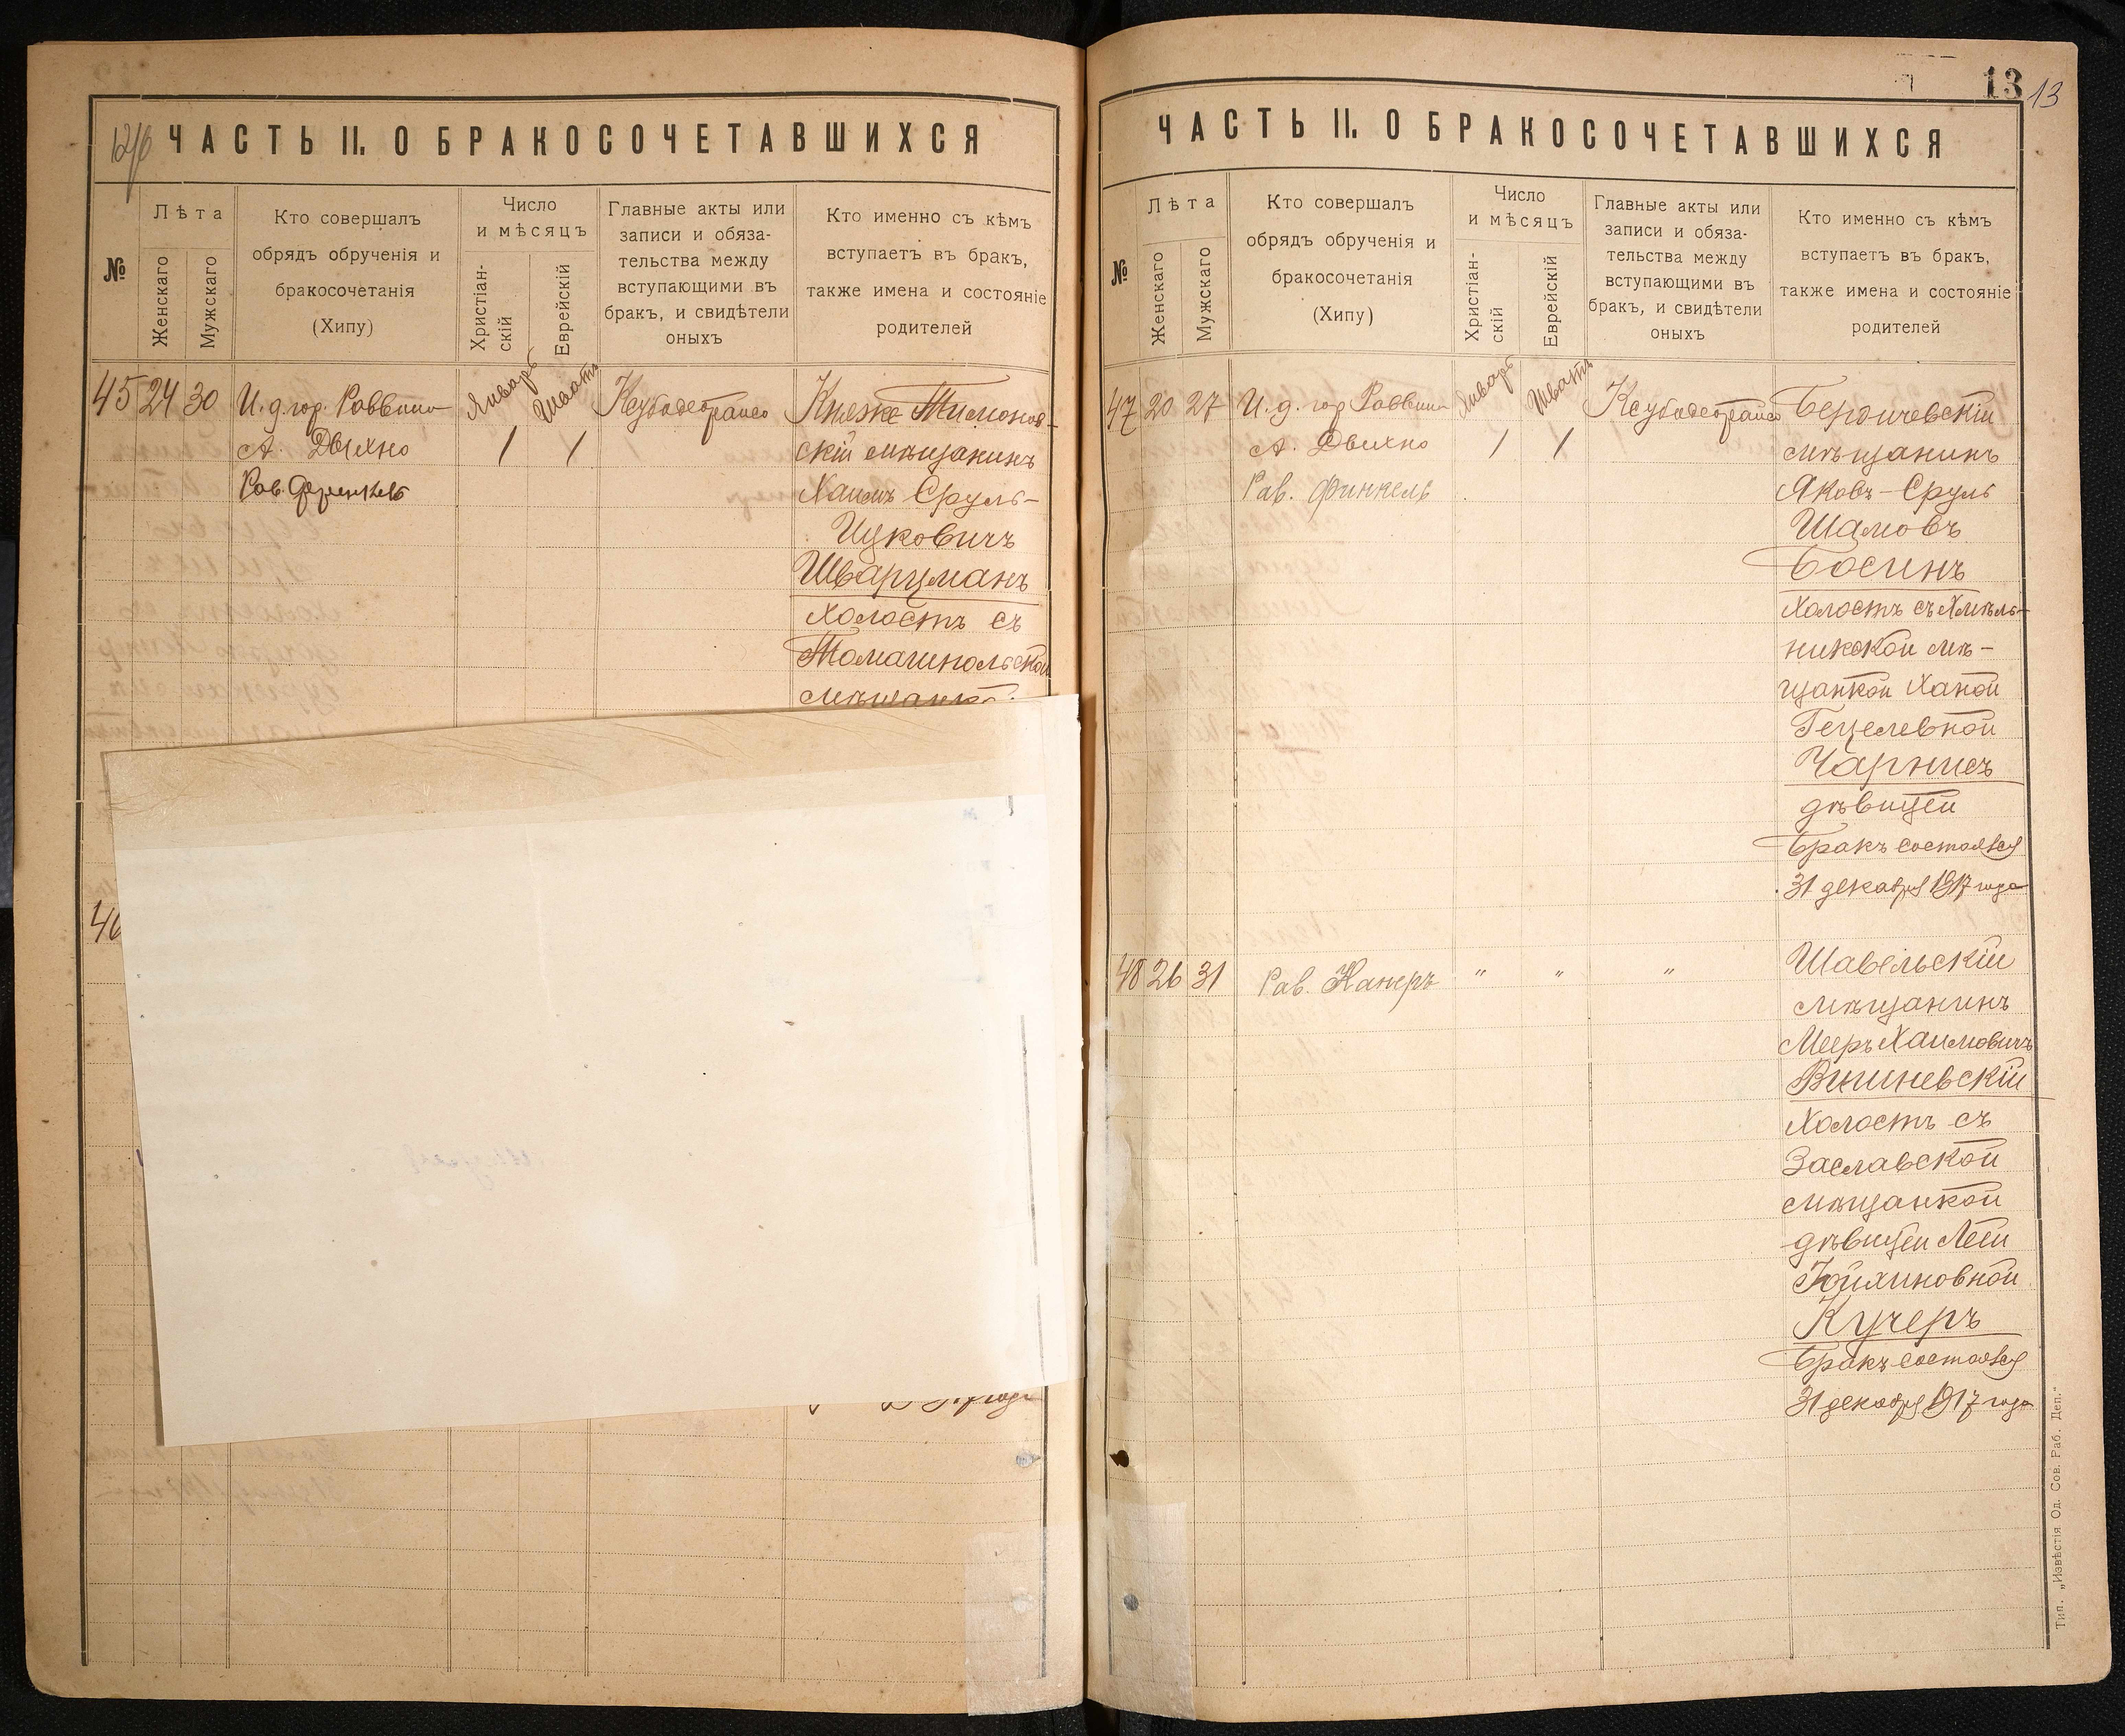 ЧАСТЬ II. О БРАКОСОЧЕТАВШИХСЯ
№
Лѣта
Женскаго
Мужскаго
Кто совершалъ
обрядъ обрученія и
бракосочетанія
(Хипу)
Число
и мѣсяцъ
Христіан-
скій
Еврейскій
Главные акты или
записи и обяза-
тельства между
вступающими въ
бракъ, и свидѣтели
оныхъ
Кто именно съ кѣмъ
вступаетъ въ бракъ,
также имена и состояніе
родителей
45 24 30
И. д. гор. Раввина
А. Двихно
Рав. Финкель
Январь
1
Шватъ
1
Княже Тимонов-
скій мѣщанинъ
Хаимъ Сруль-
Ицковичъ
Шварцманъ
холостъ съ
Томашпольской
мѣщанкой
46
года
13
13
ЧАСТЬ II. О БРАКОСОЧЕТАВШИХСЯ
№
Лѣта
Женскаго
Мужскаго
Кто совершалъ
обрядъ обрученія и
бракосочетанія
(Хипу)
Число
и мѣсяцъ
Христіан-
скій
Еврейскій
Главные акты или
записи и обяза-
тельства между
вступающими въ
бракъ, и свидѣтели
оныхъ
Кто именно съ кѣмъ
вступаетъ въ бракъ,
также имена и состояніе
родителей
47 20 27
И. д. гор Раввина
А. Двихно
Рав. Финкель
Январь
1
Шватъ
1
Бердичевскій
мѣщанинъ
Яковъ-Сруль
Шамовъ
Босинъ
холостъ съ Хмѣль-
никской мѣ-
щанкой Ханой
Гецелевной
Чарнисъ
дѣвицей
Бракъ состоялся
31 декабря 1917 года
48 26 31
Рав. Канеръ
"
"
"
Шавельскій
мѣщанинъ
Мееръ Хаимовичъ
Вишневскій
Холостъ съ
Заславской
мѣщанкой
дѣвицей Леей
Іойхиновной
Кучеръ
Бракъ состоялся
31 декабря 1917 года
Тип. „Извѣстія Од. Сов. Раб. Деп."